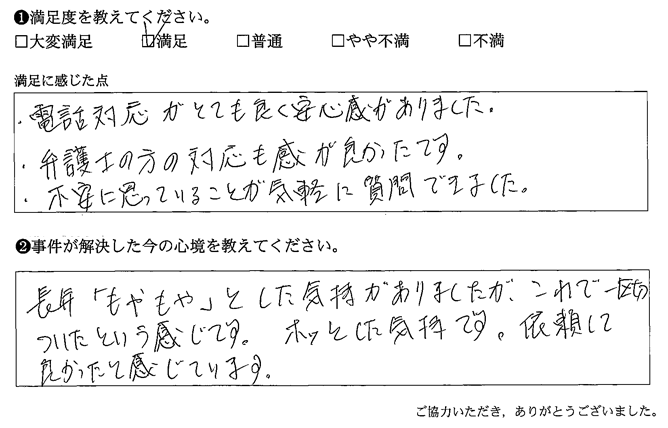 ❶満足度を教えてください。
□大変満足 ☑満足 □普通 □やや不満 □不満
満足に感じた点
・電話対応がとても良く安心感がありました。
・弁護士の方の対応も感じが良かったです。
・不安に思っていることが気軽に質問できました。
❷事件が解決した今の心境を教えてください。
長年「もやもや」とした気持がありましたが、これで一区切
ついたという感じです。ホッとした気持です。依頼して
良かったと感じています。
ご協力いただき，ありがとうございました。